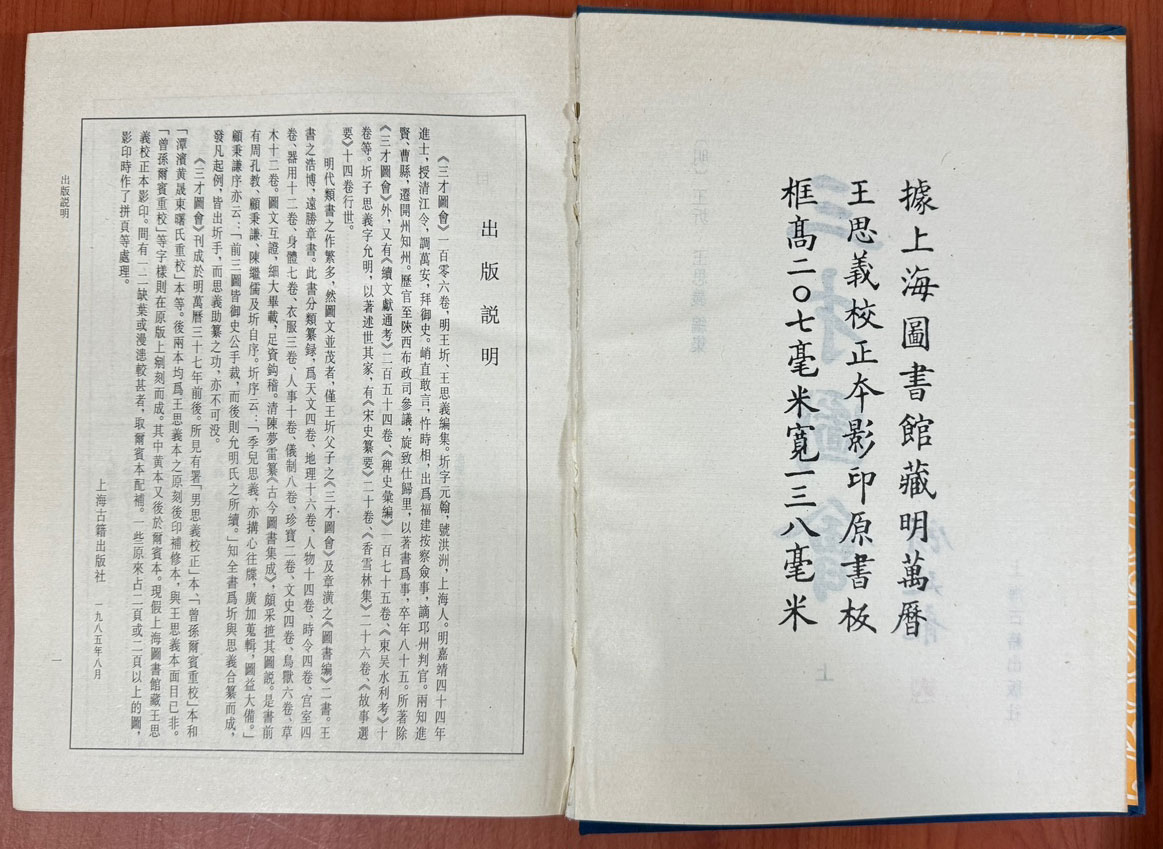 據上海圖書館藏明萬曆
王思義校正本影印原書板
框高二〇七毫米寬一三八毫米
出版説明
《三才圖會》一百零六卷,明王圻、王思義編集。圻字元翰,號洪洲,上海人。明嘉靖四十四年
進士,授清江令,調萬安,拜御史。峭直敢言,忤時相,出爲福建按察僉事,謫邛州判官。兩知進
賢、曹縣,遷開州知州。歷官至陝西布政司參議,旋致仕歸里,以著書爲事,卒年八十五。所著除
《三才圖會》外,又有《續文獻通考》二百五十四卷、《稗史彙編》一百七十五卷、《東吴水利考》十
卷等。圻子思義字允明,以著述世其家,有《宋史纂要》二十卷、《香雪林集》二十六卷、《故事選
要》十四卷行世。
明代類書之作繁多,然圖文並茂者,僅王圻父子之《三才圖會》及章潢之《圖書編》二書。王
書之浩博,遠勝章書。此書分類纂録,爲天文四卷、地理十六卷、人物十四卷、時令四卷、宫室四
卷、器用十二卷、身體七卷、衣服三卷、人事十卷、儀制八卷、珍寶二卷、文史四卷、鳥獸六卷、草
木十二卷。圖文互證,細大畢載,足資鈎稽。清陳夢雷纂《古今圖書集成》,頗采摭其圖説。是書前
有周孔教、顧秉謙、陳繼儒及圻自序。圻序云:「季兒思義,亦搆心往牒,廣加蒐輯,圖益大備。」
顧秉謙序亦云:「前三圖皆御史公手裁,而後則允明氏之所續。」知全書爲圻與思義合纂而成,
發凡起例,皆出圻手,而思義助纂之功,亦不可没。
《三才圖會》刊成於明萬曆三十七年前後。所見有署「男思義校正」本、「曾孫爾賓重校」本和
「潭濱黄晟東曙氏重校」本等。後兩本均爲王思義本之原刻後印補修本,與王思義本面目已非。
「曾孫爾賓重校」等字樣則在原版上剜刻而成。其中黄本又後於爾賓本。現假上海圖書館藏王思
義校正本影印。間有一二缺葉或漫漶較甚者,取爾賓本配補。一些原來占二頁或二頁以上的圖,
影印時作了拼頁等處理。
上海古籍出版社 一九八五年八月
出版説明
一